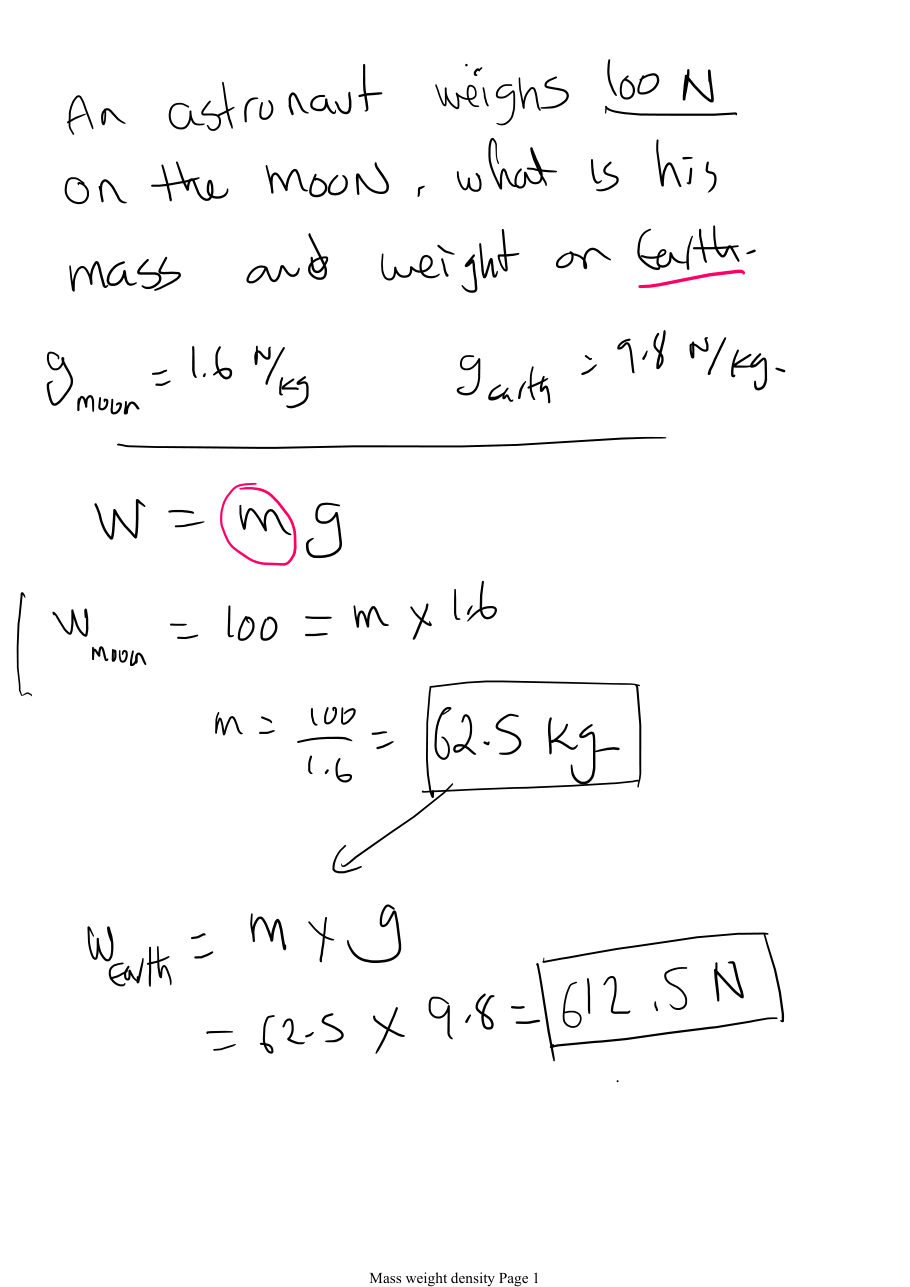 An astronaut weighs 100 N
on the moon, what is his
mass and weight on Earth.
g moon = 1.6 N/kg g earth = 9.8 N/kg.
W = m g
W moon = 100 = m × 1.6
m = 100/1.6 = 62.5 kg
W Earth = m × g
= 62.5 × 9.8 = 612.5 N
Mass weight density Page 1